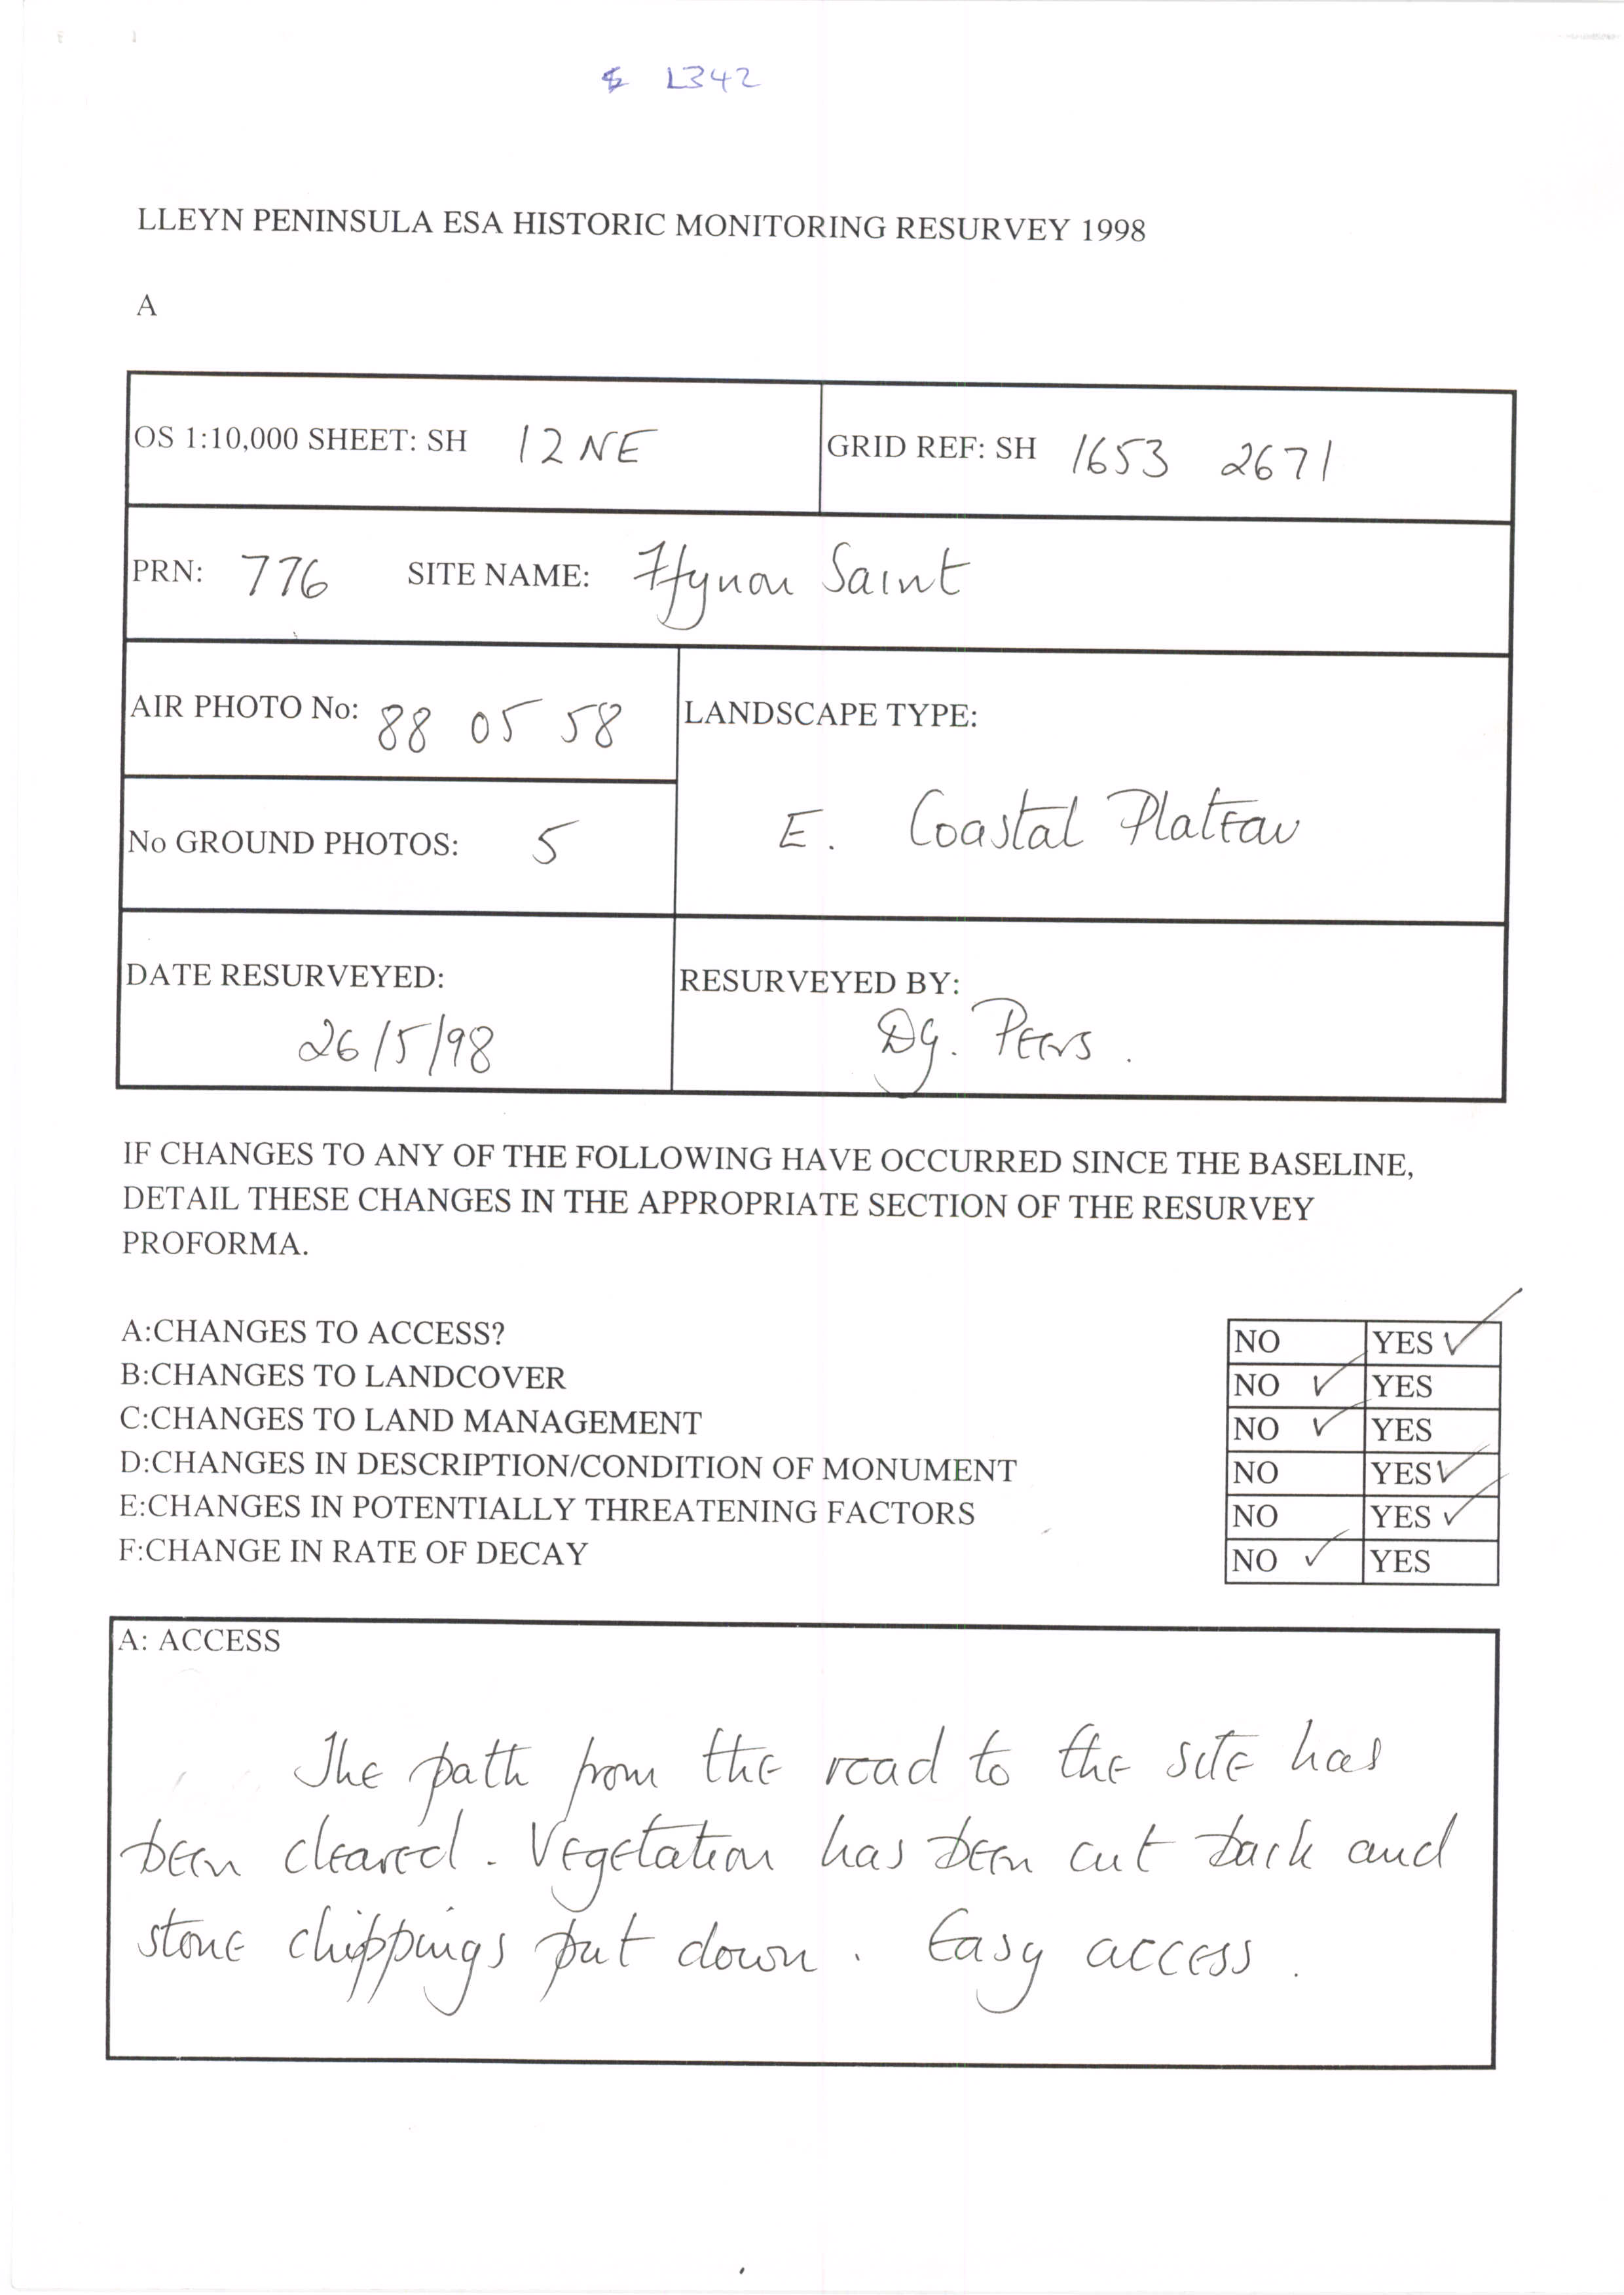 L342
LLEYN PENINSULA ESA HISTORIC MONITORING RESURVEY 1998
A
OS 1:10,000 SHEET: SH 12NE GRID REF: SH 1653 2671
PRN: 776 SITE NAME: Ffynon Saint
AIR PHOTO No: 88 05 58 LANDSCAPE TYPE:
E. Coastal Plateau
No GROUND PHOTOS: 5
DATE RESURVEYED: RESURVEYED BY:
26/5/98 Dg. Peers.
IF CHANGES TO ANY OF THE FOLLOWING HAVE OCCURRED SINCE THE BASELINE,
DETAIL THESE CHANGES IN THE APPROPRIATE SECTION OF THE RESURVEY
PROFORMA.
A:CHANGES TO ACCESS? NO YES ✓
B:CHANGES TO LANDCOVER NO ✓ YES
C:CHANGES TO LAND MANAGEMENT NO ✓ YES
D:CHANGES IN DESCRIPTION/CONDITION OF MONUMENT NO YES ✓
E:CHANGES IN POTENTIALLY THREATENING FACTORS NO YES ✓
F:CHANGE IN RATE OF DECAY NO ✓ YES
A: ACCESS
The path from the road to the site has
been cleared. Vegetation has been cut back and
stone chippings put down. Easy access.